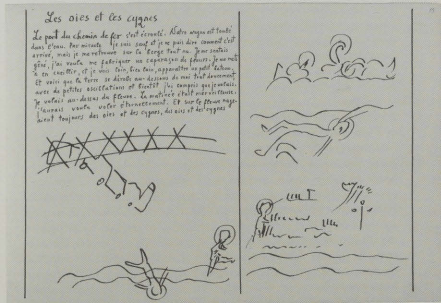 Les oies et les cygnes
Le pont du chemin de fer s'est écroulé. Notre wagon est tombé
dans l'eau. Par miracle je suis sauf et je ne puis dire comment c'est
arrivé, mais je me retrouve sur la berge tout nu. Je me sentais
gêné, j'ai voulu me fabriquer un caparaçon de fleurs. Je me mis
à en cueillir, et je vois loin, bien loin, apparaître un petit
Et voici que la terre se dérobe au-dessous de moi tout doucement
avec de petites oscillations et bientôt j'ai compris que je volais.
Je volais au-dessus du fleuve. La matinée était merveilleuse.
J'aurais voulu voler éternellement. Et sur le fleuve nage-
aient toujours des oies et des cygnes, des oies et des cygnes